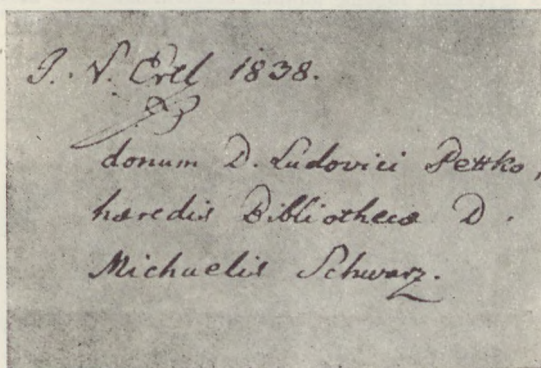 J. V. Ertl 1838.
donum D. Ludovici Pettko,
hæredis Bibliothecæ D.
Michaelis Schwarz.